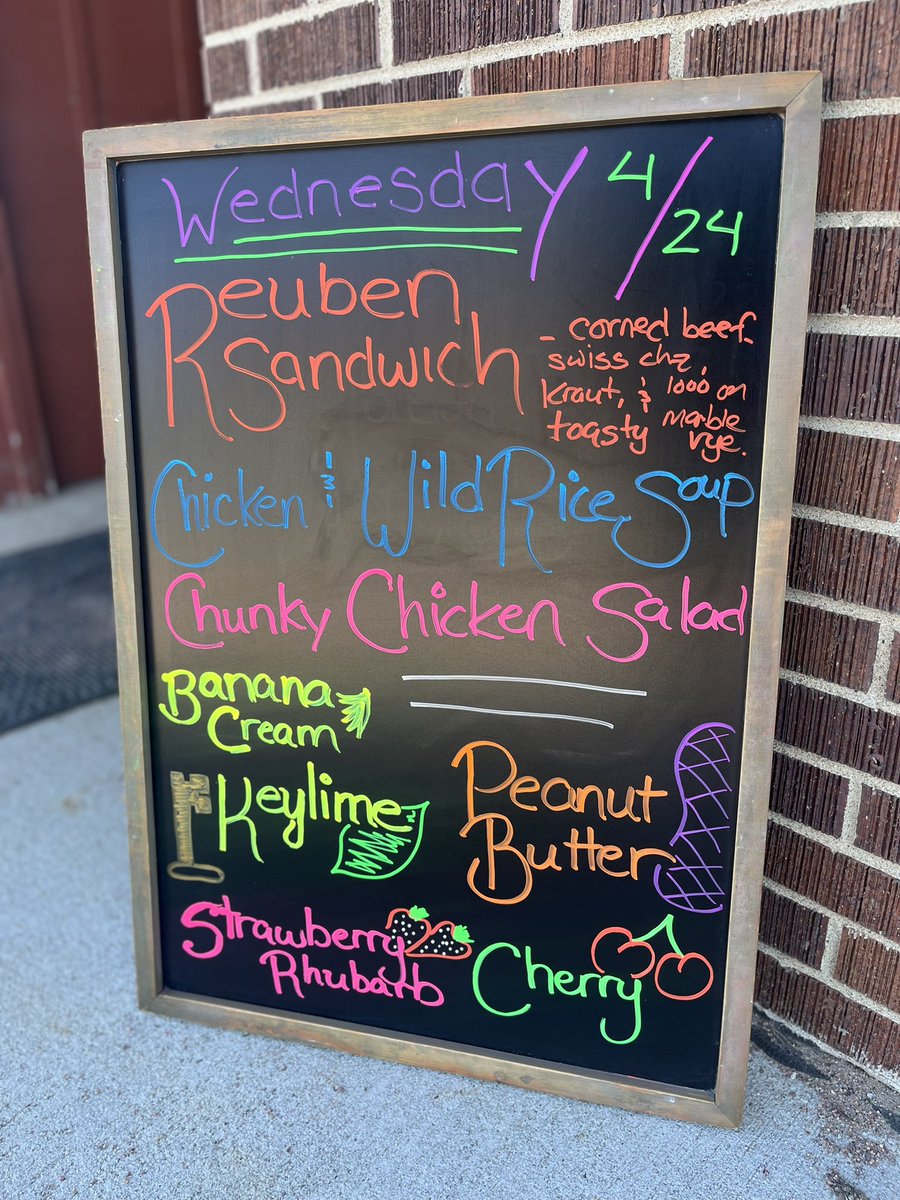 Wednesday 4/24
Reuben
Sandwich
- corned beef
swiss chz,
Kraut, & 1000 on
toasty marble
rye.
Chicken & Wild Rice Soup
Chunky Chicken Salad
Banana
Cream
Keylime
Peanut
Butter
Strawberry
Rhubarb
Cherry